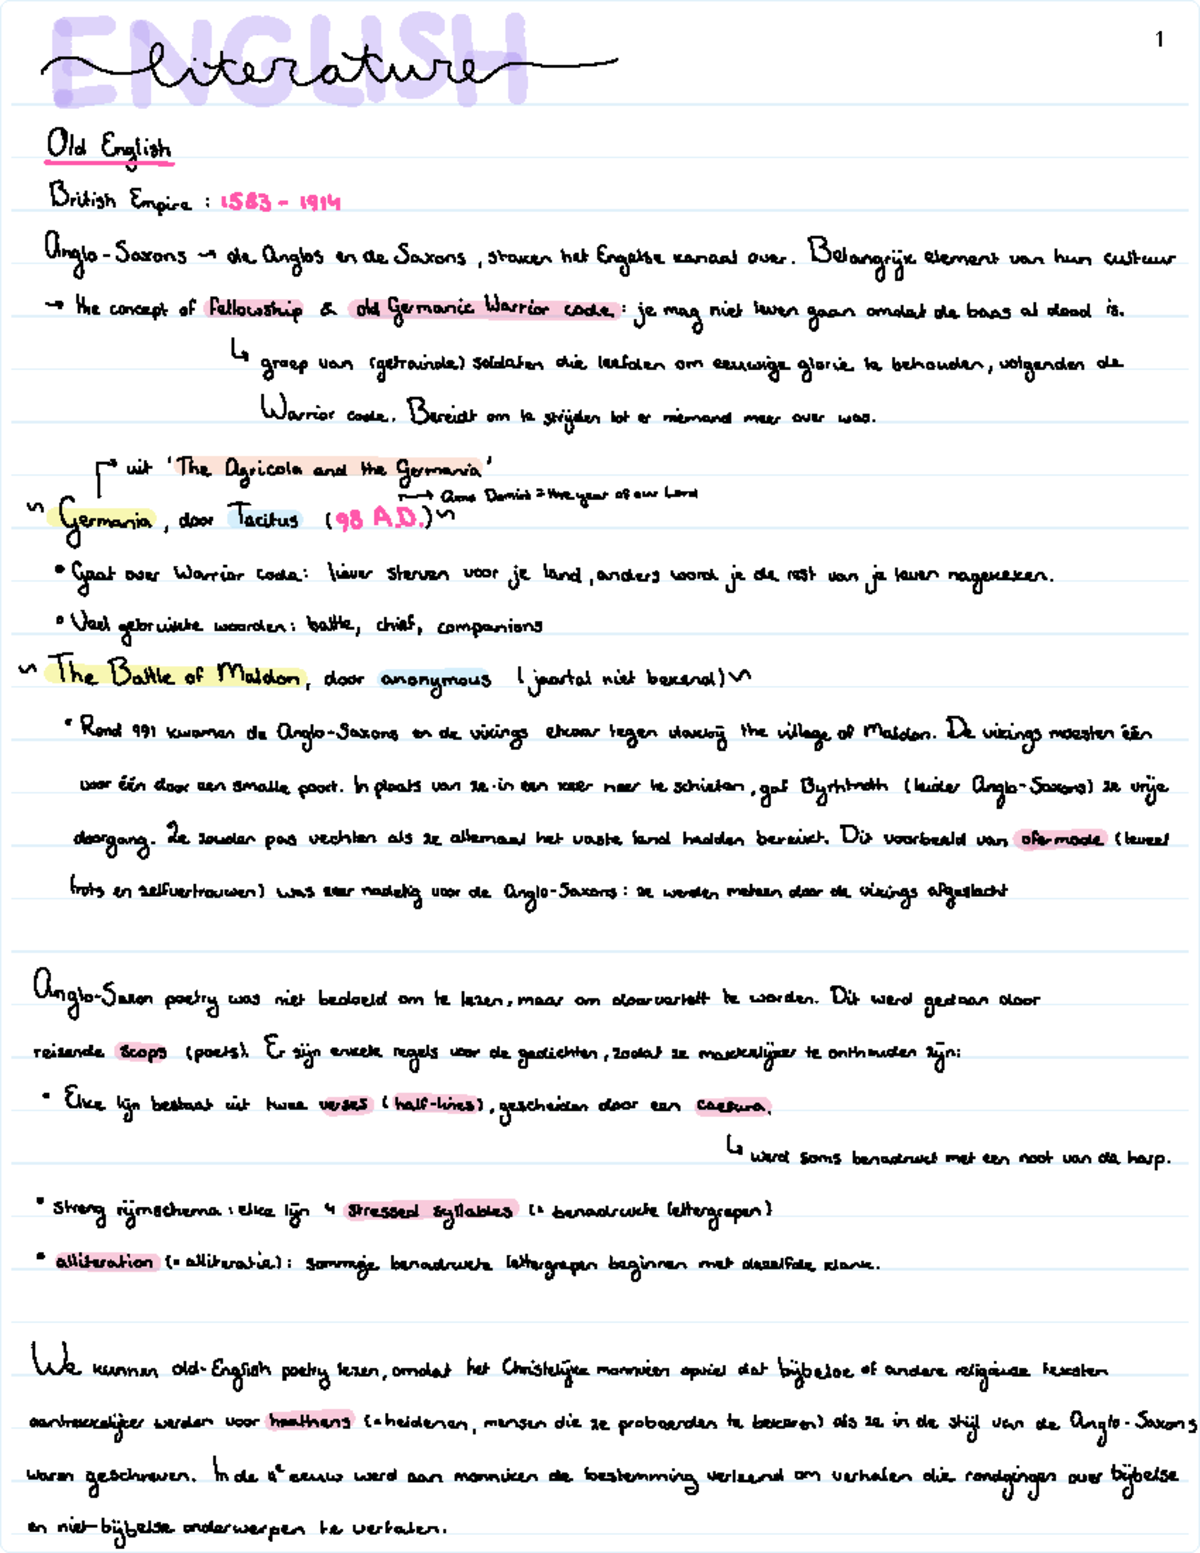 ENGLISH
literature
1
Old English
British Empire : 1583 - 1914
Anglo-Saxons → de Anglos en de Saxons, staken het Engelse kanaal over. Belangrijk element van hun cultuur
→ the concept of Fellowship & old Germanic Warrior code : je mag niet leven gaan omdat de baas al dood is.
↳ groep van (getrainde) soldaten die leefden om eeuwige glorie te behouden, volgenden de
Warrior code. Bereidt om te strijden tot er niemand meer over was.
↱ uit 'The Agricola and the Germania'
→ Anno Domini = the year of our Lord
~ Germania, door Tacitus (98 A.D.) ~
• Gaat over Warrior code: liever sterven voor je land, anders word je de rest van je leven nagekeken.
• Veel gebruikte woorden: battle, chief, companions
~ The Battle of Maldon, door anonymous (jaartal niet bekend) ~
• Rond 991 kwamen de Anglo-Saxons en de vikings elkaar tegen vlakbij the village of Maldon. De vikings moesten één
voor één door een smalle poort. In plaats van ze in een keer neer te schieten, gaf Byrhtnoth (leider Anglo-Saxons) ze vrije
doorgang. Ze zouden pas vechten als ze allemaal het vaste land hadden bereikt. Dit voorbeeld van ofermode (teveel
trots en zelfvertrouwen) was zeer nadelig voor de Anglo-Saxons : ze werden meteen door de vikings afgeslacht
Anglo-Saxon poetry was niet bedoeld om te lezen, maar om doorvertelt te worden. Dit werd gedaan door
reizende scops (poets). Er zijn enkele regels voor de gedichten, zodat ze makkelijker te onthouden zijn:
• Elke lijn bestaat uit twee verses (half-lines), gescheiden door een caesura.
↳ werd soms benadrukt met een noot van de harp.
• Streng rijmschema : elke lijn 4 stressed syllables (= benadrukte lettergrepen)
• alliteration (= alliteratie) : sommige benadrukte lettergrepen beginnen met dezelfde klank.
We kunnen old-English poetry lezen, omdat het Christelijke monniken opviel dat bijbelse of andere religieuze teksten
aantrekkelijker werden voor heathens (= heidenen, mensen die ze probeerden te bekeren) als ze in de stijl van de Anglo-Saxons
waren geschreven. In de eeuw werd aan monniken de toestemming verleend om verhalen die rondgingen over bijbelse
en niet-bijbelse onderwerpen te vertalen.